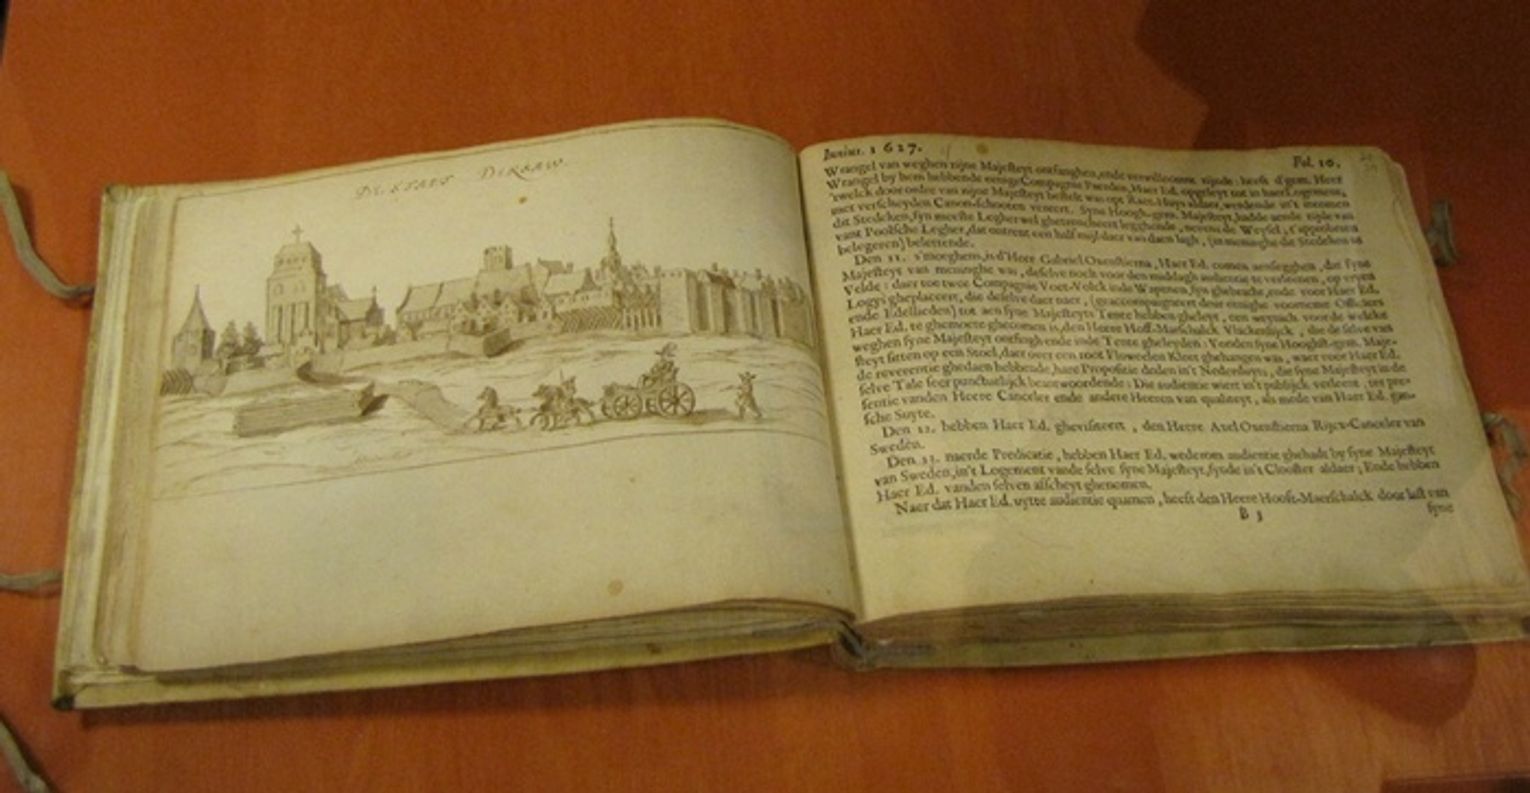 DE STADT DIRSAW.
Iunius. 1627. Fol. 10.
Wrangel van weghen zijne Majesteyt ontfanghen, ende verwillecomt zijnde: heeft d'gem. Heer
Wrangel by hem hebbende eenige Compagnie Paerden, Haer Ed. opgeleyt tot in haer Logement,
'twelck door ordre van zijne Majesteyt bestelt was opt Raet-Huys aldaer, werdende in't incomen
met verscheyden Canon-schooten vereert. Syne Hoogh-gem. Majesteyt, hadde aende zijde van
dit Stedeken, syn meeste Legher wel ghetrencheert legghende, nevens de Weysel, t'approberen
vant Poolsche Legher, dat ontrent een half mijl daer van daen lagh, (in meninghe dit Stedeken te
belegeren) belettende.
Den 11. s'moeghens, is d'Heer Gabriel Oxenstierna, Haer Ed. comen aensegghen, dat syne
Majesteyt van meninghe was, deselve noch voor den middagh audientie te verleenen, op vryen
Velde: daer toe twee Compagnie Voet-Volck inde Wapenen, syn ghebracht, ende voor Haer Ed.
Logys gheplaceert, die deselve daer naer, (geaccompagneert door eenighe voorneme Officiers
ende Edellieden) tot aen syne Majesteyts Tente hebben gheleyt, een weynich voor de welcke
Haer Ed. te ghemoete ghecomen is, den Heere Hoff-Maeschalck Vlackenlijck, die deselve van
weghen syne Majesteyt ontfingh ende inde Tente gheleyden: Vonden syne Hooghst-gem. Maje-
steyt sitten op een Stoel, daer over een root Flouweelen Kleet ghehangen was, waer voor Haer Ed.
de reverentie ghedaen hebbende, hare Propositie deden in't Nederduyts, die syne Majesteyt in de
selve Tale seer punctuelijck beantwoordende: Die audientie wiert in't publijck verleent, ter pre-
sentie vanden Heere Canceler ende andere Heeren van qualiteyt, als mede van Haer Ed. gan-
sche Suyte.
Den 12. hebben Haer Ed. ghevisiteert, den Heere Axel Oxenstierna Rijcx-Canceler van
Sweden.
Den 13. naerde Predicatie, hebben Haer Ed. wederom audientie ghehadt by syne Majesteyt
van Sweden, in't Logement vande selve syne Majesteyt, synde in't Clooster aldaer; Ende hebben
Haer Ed. vanden selven afscheyt ghenomen.
Naer dat Haer Ed. uytte audientie quamen, heeft den Heere Hooft-Maerschalck door last van
B 3 syne